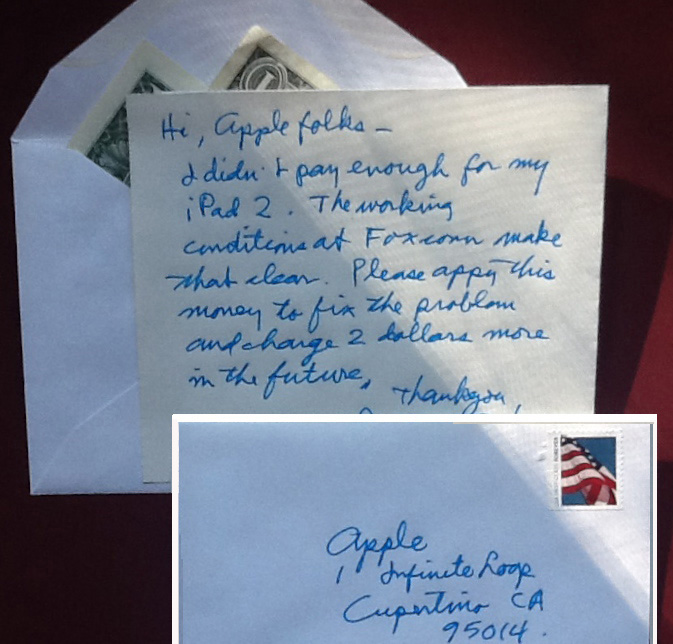 Hi, Apple folks –
I didn't pay enough for my
iPad 2. The working
conditions at Foxconn make
that clear. Please appy this
money to fix the problem
and charge 2 dollars more
in the future.
Thank you,
Apple
1 Infinite Loop
Cupertino CA
95014